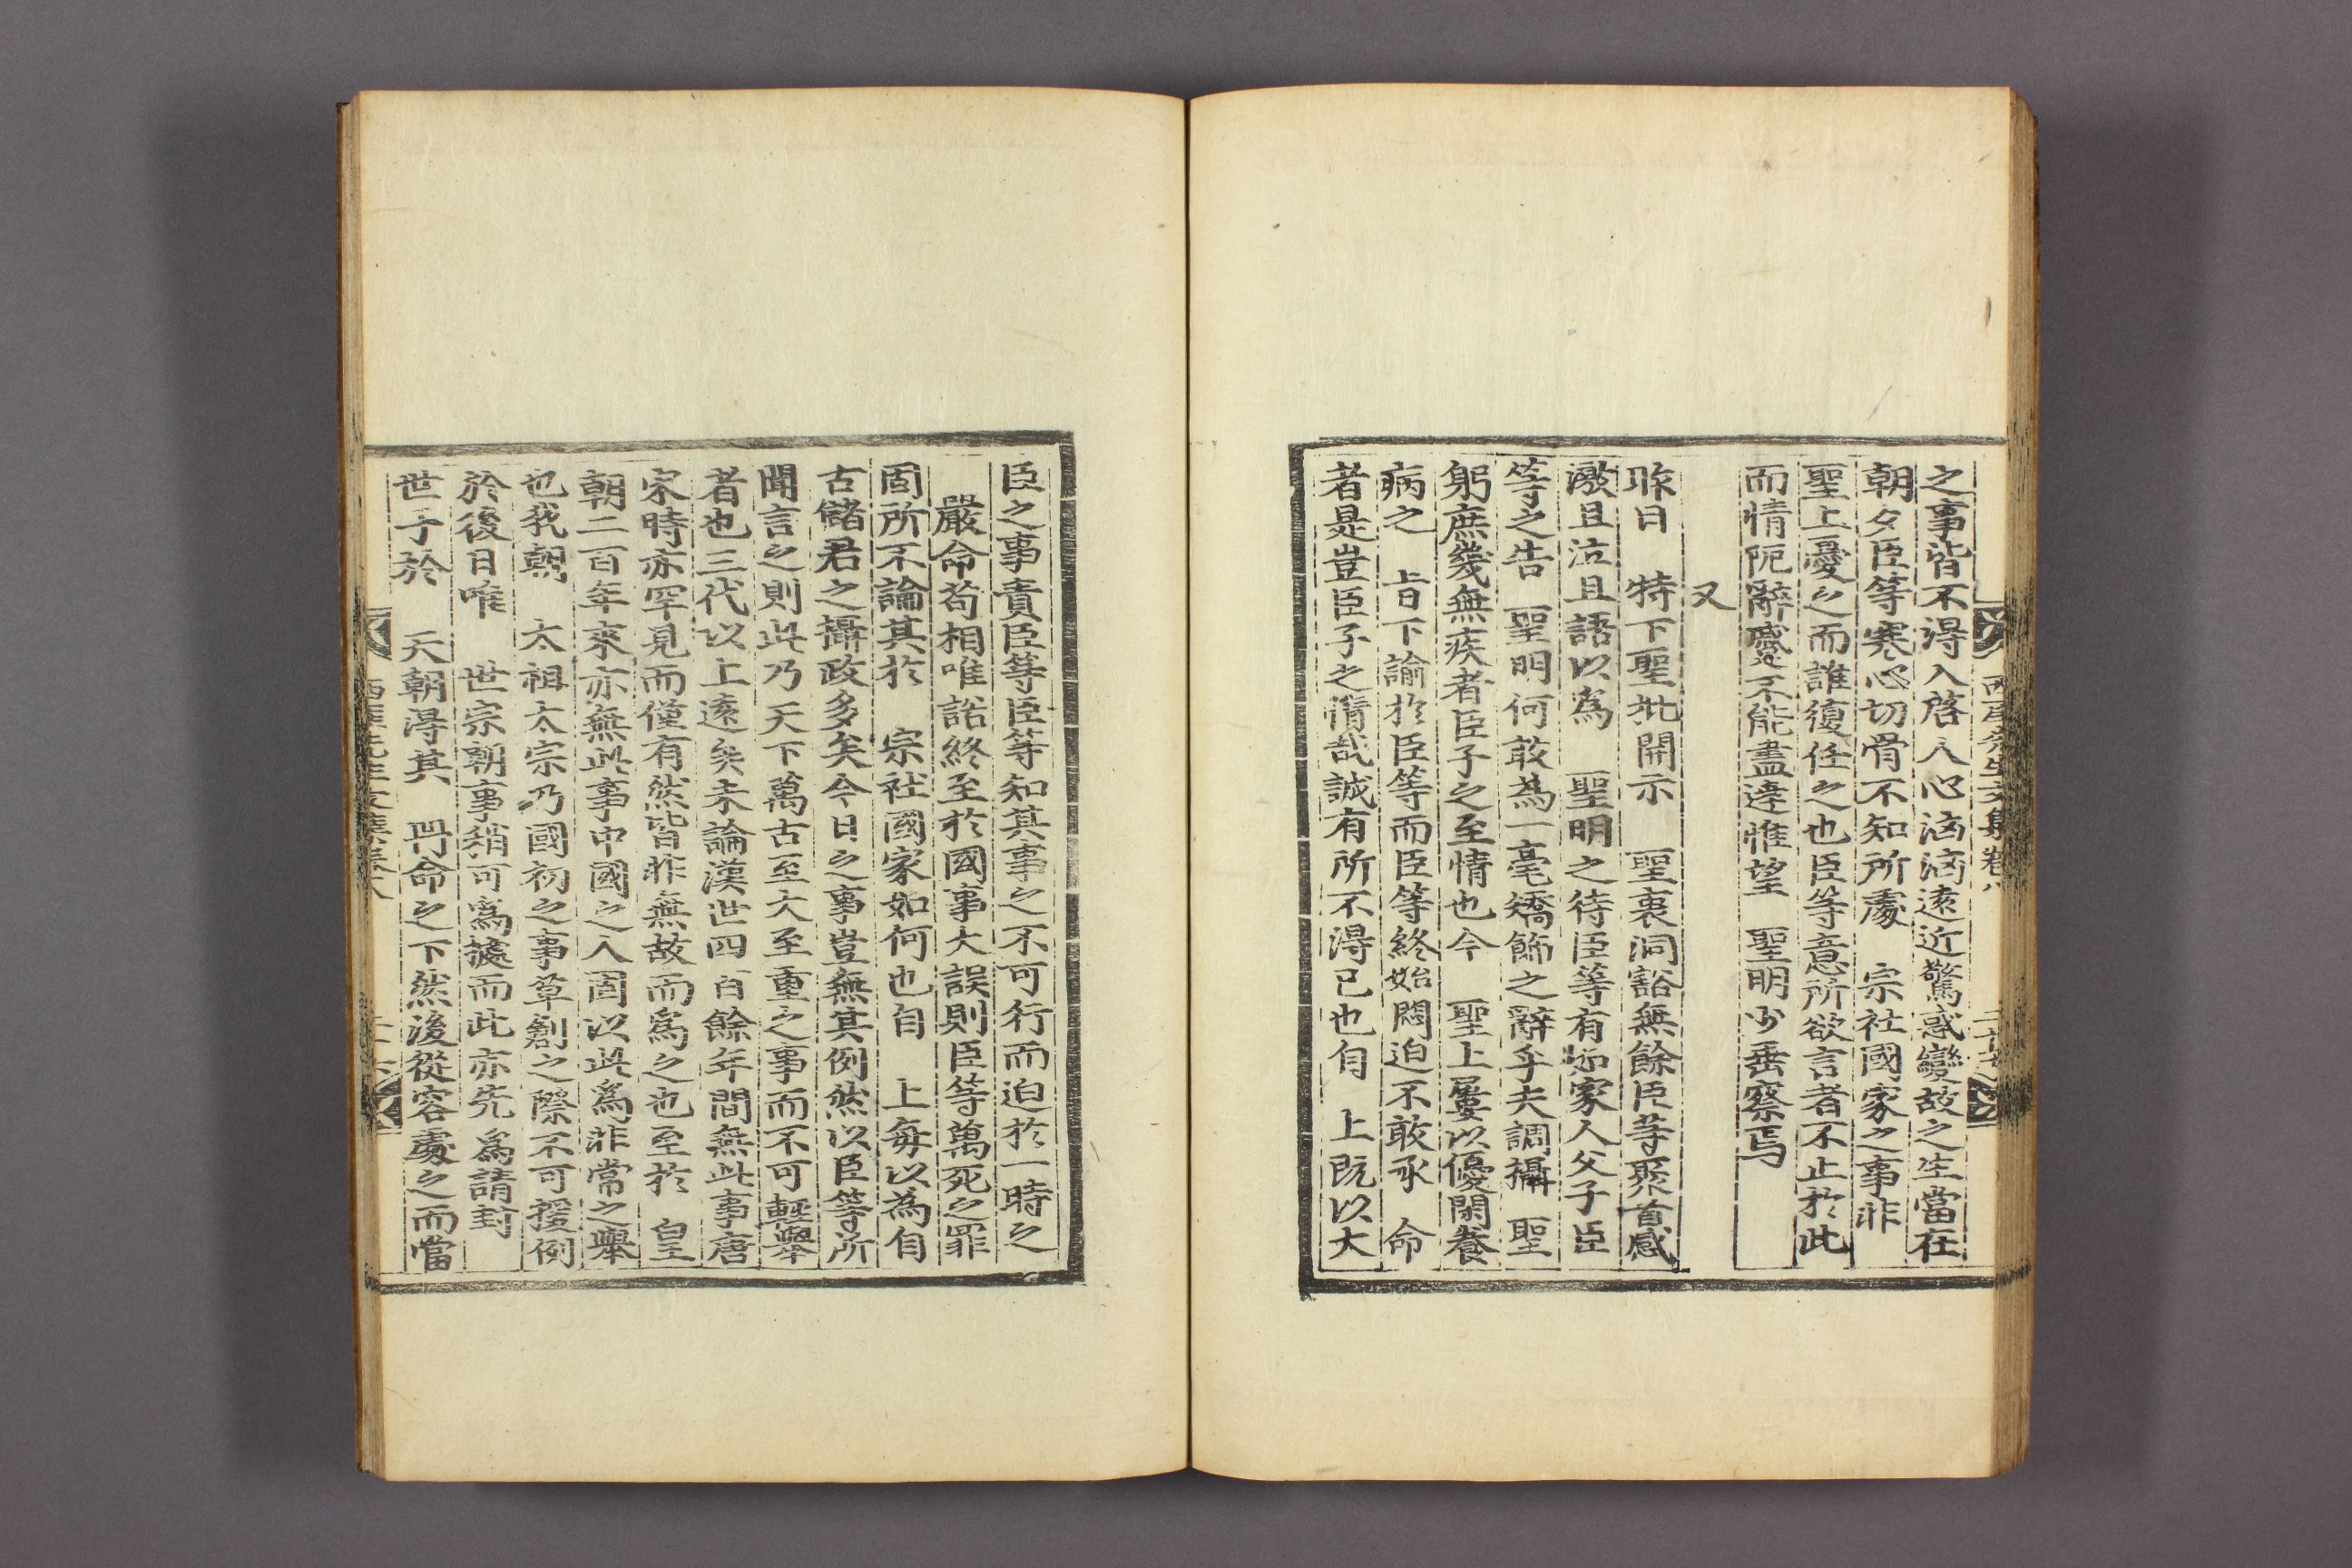 之事皆不得入啓人心洶洶遠近驚惑變故之生當在
朝夕臣等寒心切骨不知所處 宗社國家之事非
聖上憂之而誰復任之也臣等意所欲言者不止於此
而情阨辭蹙不能盡達惟望 聖明少垂察焉
又
昨日 特下聖批開示 聖衷洞豁無餘臣等聚首感
激且泣且語以爲 聖明之待臣等有如家人父子臣
等之告 聖明何敢爲一毫矯飾之辭乎夫調攝 聖
躬庶幾無疾者臣子之至情也今 聖上屢以優閑養
病之 旨下諭於臣等而臣等終始悶迫不敢承 命
者是豈臣子之情哉誠有所不得已也自 上旣以大
臣之事責臣等臣等知其事之不可行而迫於一時之
嚴命苟相唯諾終至於國事大誤則臣等萬死之罪
固所不論其於 宗社國家如何也自 上每以爲自
古儲君之攝政多矣今日之事豈無其例然以臣等所
聞言之則此乃天下萬古至大至重之事而不可輕擧
者也三代以上遠矣未論漢世四百餘年間無此事唐
宋時亦罕見而僅有然皆非無故而爲之也至於 皇
朝二百年來亦無此事中國之人固以此爲非常之擧
也我朝 太祖太宗乃國初之事草創之際不可援例
於後日唯 世宗朝事稍可爲據而此亦先爲請封
世子於 天朝得其 冊命之下然後從容處之而當
西厓先生文集卷八